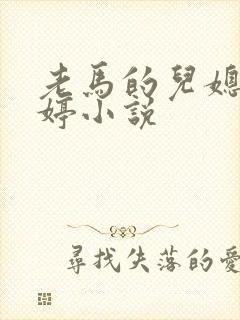 老馬的兒媳
婷小説
尋找失落的愛